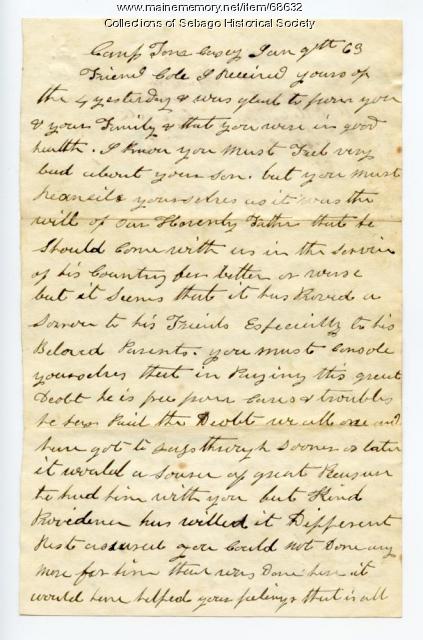 www.mainememory.net/item/68632
Collections of Sebago Historical Society
Camp Casey Jan 9th 63
Friend Cole I Received yours of
the 4 yesterday & was glad to from you
& your Family & that you were in good
health. I know you must Feel very
bad about your son. but you must
yourselves as it was the
will of our Heavenly Father that he
Should Come with us in the Service
of his Country for better or worse
but it Seems that it has Proved a
Sorrow to his Friends Especially to his
Beloved Parents. you must Console
yourselves that in Paying this great
Deobt he is free from Cares & troubles
he has Paid the Deobt we all owe and
have got to through Sooner or later
it would a Source of great Pleasure
to had him with you but Kind
Providence has willed it Different
Rest assured you Could not Done any
more for him than was Done here it
would have helped your feelings that is all